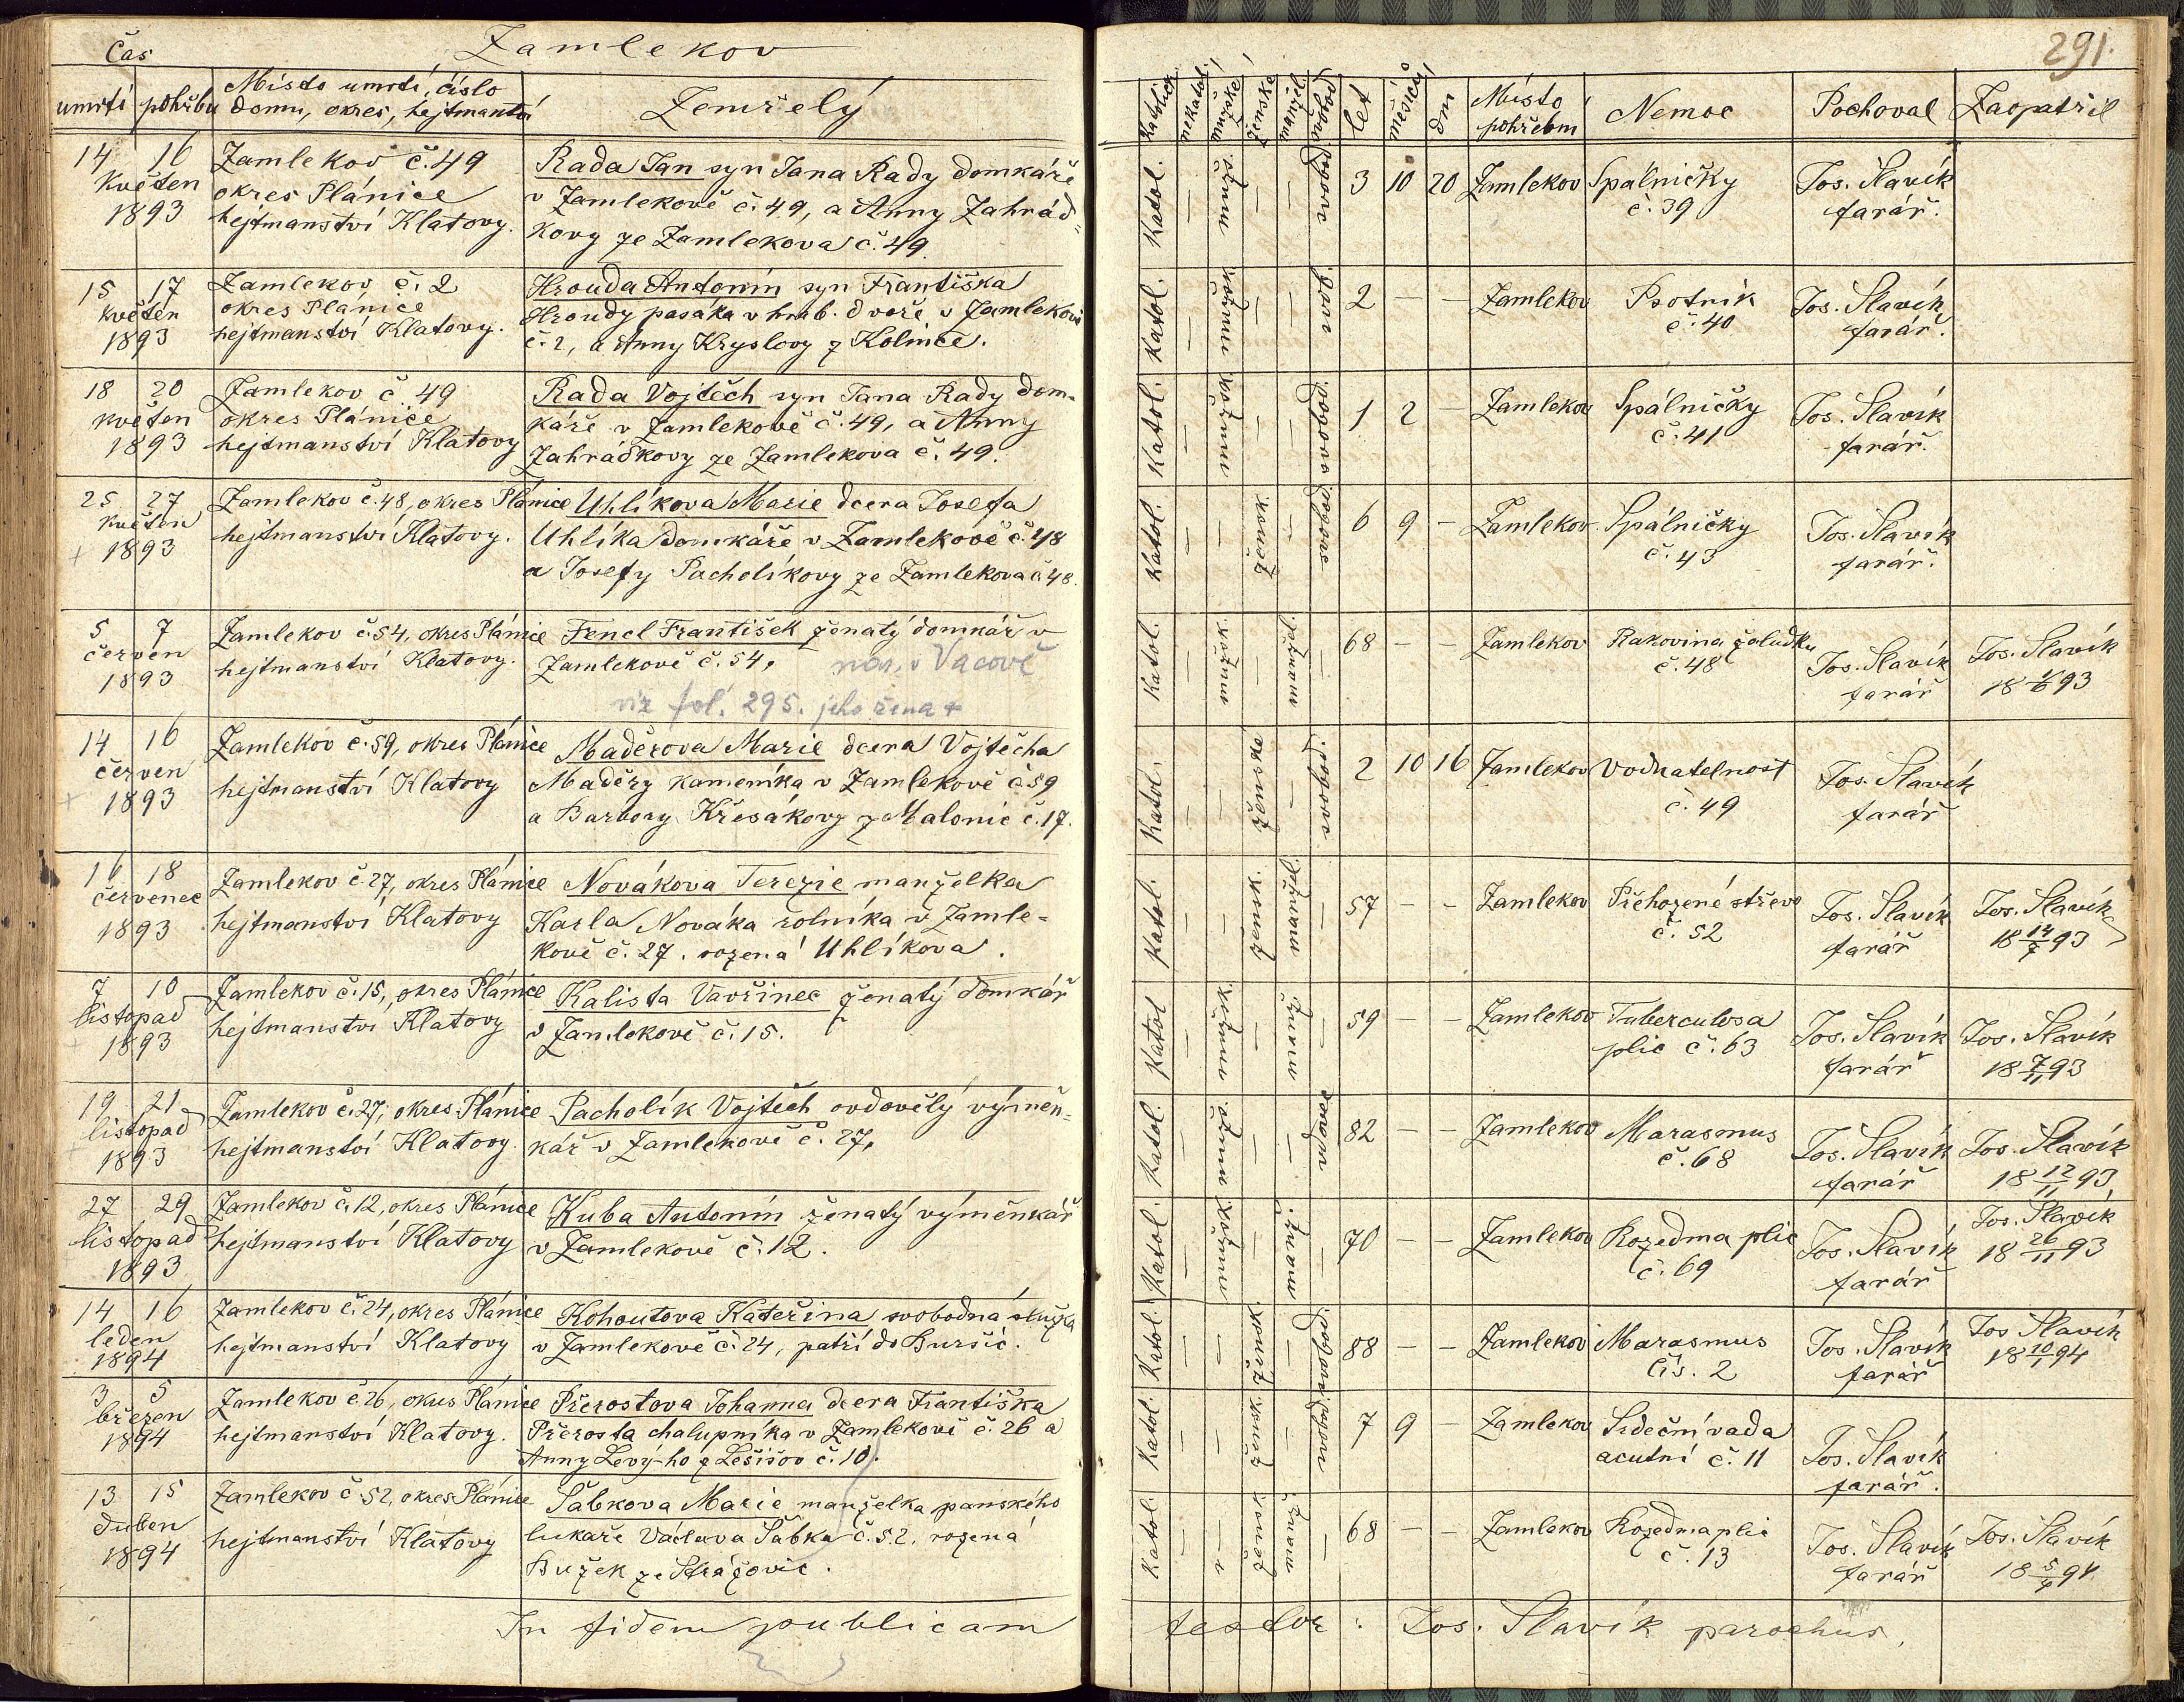 Zamlekov
291.
čas
umrtí pohřbu
Místo umrtí, číslo
domu, okres, hejtmanství
Zemřelý
Katolick. nekatol. mužské ženské manžel. svobod. let měsíců dní
Místo
pohřební
Nemoc
Pochoval
Zaopatřil
14 16
Květen
1893
Zamlekov č. 49
okres Plánice
hejtmanství Klatovy.
Rada Jan syn Jana Rady domkáře
v Zamlekově č. 49, a Anny Zahrád-
kovy ze Zamlekova č. 49.
Katol. — mužsk. — — svobod. 3 10 20
Zamlekov
Spálničky
č. 39
Jos. Slavík
farář.
15 17
květen
1893
Zamlekov č. 2
okres Plánice
hejtmanství Klatovy.
Hrouda Antonín syn Františka
Hroudy pasáka v hrab. dvoře v Zamlekově
č. 2, a Anny Kryslovy z Kolince.
Katol. — mužsk. — — svob. 2 — —
Zamlekov
Psotník
č. 40
Jos. Slavík
farář.
18 20
květen
1893
Zamlekov č. 49
okres Plánice
hejtmanství Klatovy
Rada Vojtěch syn Jana Rady dom-
káře v Zamlekově č. 49, a Anny
Zahrádkovy ze Zamlekova č. 49.
Katol. — mužsk. — — svobod. 1 2 —
Zamlekov
Spálničky
č. 41
Jos. Slavík
farář.
25 27
květen
1893
Zamlekov č. 48, okres Plánice
hejtmanství Klatovy.
Uhlíkova Marie dcera Josefa
Uhlíka domkáře v Zamlekově č. 48
a Josefy Pacholíkovy ze Zamlekova č. 48.
Katol. — — žensk. — svobod. 6 9 —
Zamlekov
Spálničky
č. 43
Jos. Slavík
farář.
5 7
červen
1893
Zamlekov č. 54, okres Plánice
hejtmanství Klatovy.
Fencl František ženatý domkář v
Zamlekově č. 54, nar. v Vacově
viz fol. 295. jeho žena +
Katol. — mužsk. — manžel. — 68 — —
Zamlekov
Rakovina žaludku
č. 48
Jos. Slavík
farář
Jos. Slavík
18 1/6 93
14 16
červen
1893
Zamlekov č. 59, okres Plánice
hejtmanství Klatovy
Maděrova Marie dcera Vojtěcha
Maděry kameníka v Zamlekově č 59
a Barbory Křesákovy z Malonic č. 17.
Katol. — — ženské — svobod. 2 10 16
Zamlekov
Vodnatelnost
č. 49
Jos. Slavík
farář
16 18
červenec
1893
Zamlekov č. 27, okres Plánice
hejtmanství Klatovy
Novákova Terezie manželka
Karla Nováka rolníka v Zamle-
kově č. 27. rozená Uhlíkova.
Katol. — — žensk. manžel. — 57 — —
Zamlekov
Přehozené střevo
č. 52
Jos. Slavík
farář
Jos. Slavík
18 14/7 93
7 10
listopad
1893
Zamlekov č. 15, okres Plánice
hejtmanství Klatovy
Kalista Vavřinec ženatý domkář
v Zamlekově č. 15.
Katol — mužsk. — manž. — 59 — —
Zamlekov
Tuberculosa
plic č. 63
Jos. Slavík
farář
Jos. Slavík
18 7/11 93
19 21
listopad
1893
Zamlekov č. 27, okres Plánice
hejtmanství Klatovy.
Pacholík Vojtěch ovdovělý výměn-
kář v Zamlekově č. 27,
Katol. — mužsk. — — vdov. 82 — —
Zamlekov
Marasmus
č. 68
Jos. Slavík
farář
Jos. Slavík
18 12/11 93
27 29
listopad
1893
Zamlekov č. 12, okres Plánice
hejtmanství Klatovy
Kuba Antonín ženatý výměnkář
v Zamlekově č. 12.
Katol. — mužsk. — manž. — 70 — —
Zamlekov
Rozedma plic
č. 69
Jos. Slavík
farář
Jos. Slavík
18 26/11 93
14 16
leden
1894
Zamlekov č. 24, okres Plánice
hejtmanství Klatovy
Kohoutova Kateřina svobodná služka
v Zamlekově č. 24, patří do Buršic.
Katol. — — žensk. — svobod. 88 — —
Zamlekov
Marasmus
čís. 2
Jos. Slavík
farář
Jos Slavík
18 10/1 94
3 5
březen
1894
Zamlekov č. 26, okres Plánice
hejtmanství Klatovy.
Přerostova Johanna dcera Františka
Přerosta chalupníka v Zamlekově č. 26 a
Anny Levý-ho z Lešišov č. 10.
Katol. — — žensk. — svobod. 7 9 —
Zamlekov
Srdeční vada
acutní č. 11
Jos. Slavík
farář.
13 15
duben
1894
Zamlekov č. 52, okres Plánice
hejtmanství Klatovy
Šabkova Marie manželka panského
lukaře Václava Šabka č. 52. rozená
Bužek ze Strážovic.
Katol. — — žensk. manž. — 68 — —
Zamlekov
Rozedma plic
č. 13
Jos. Slavík
farář
Jos. Slavík
18 5/4 94
In fidem publicam testor: Jos. Slavík parochus.